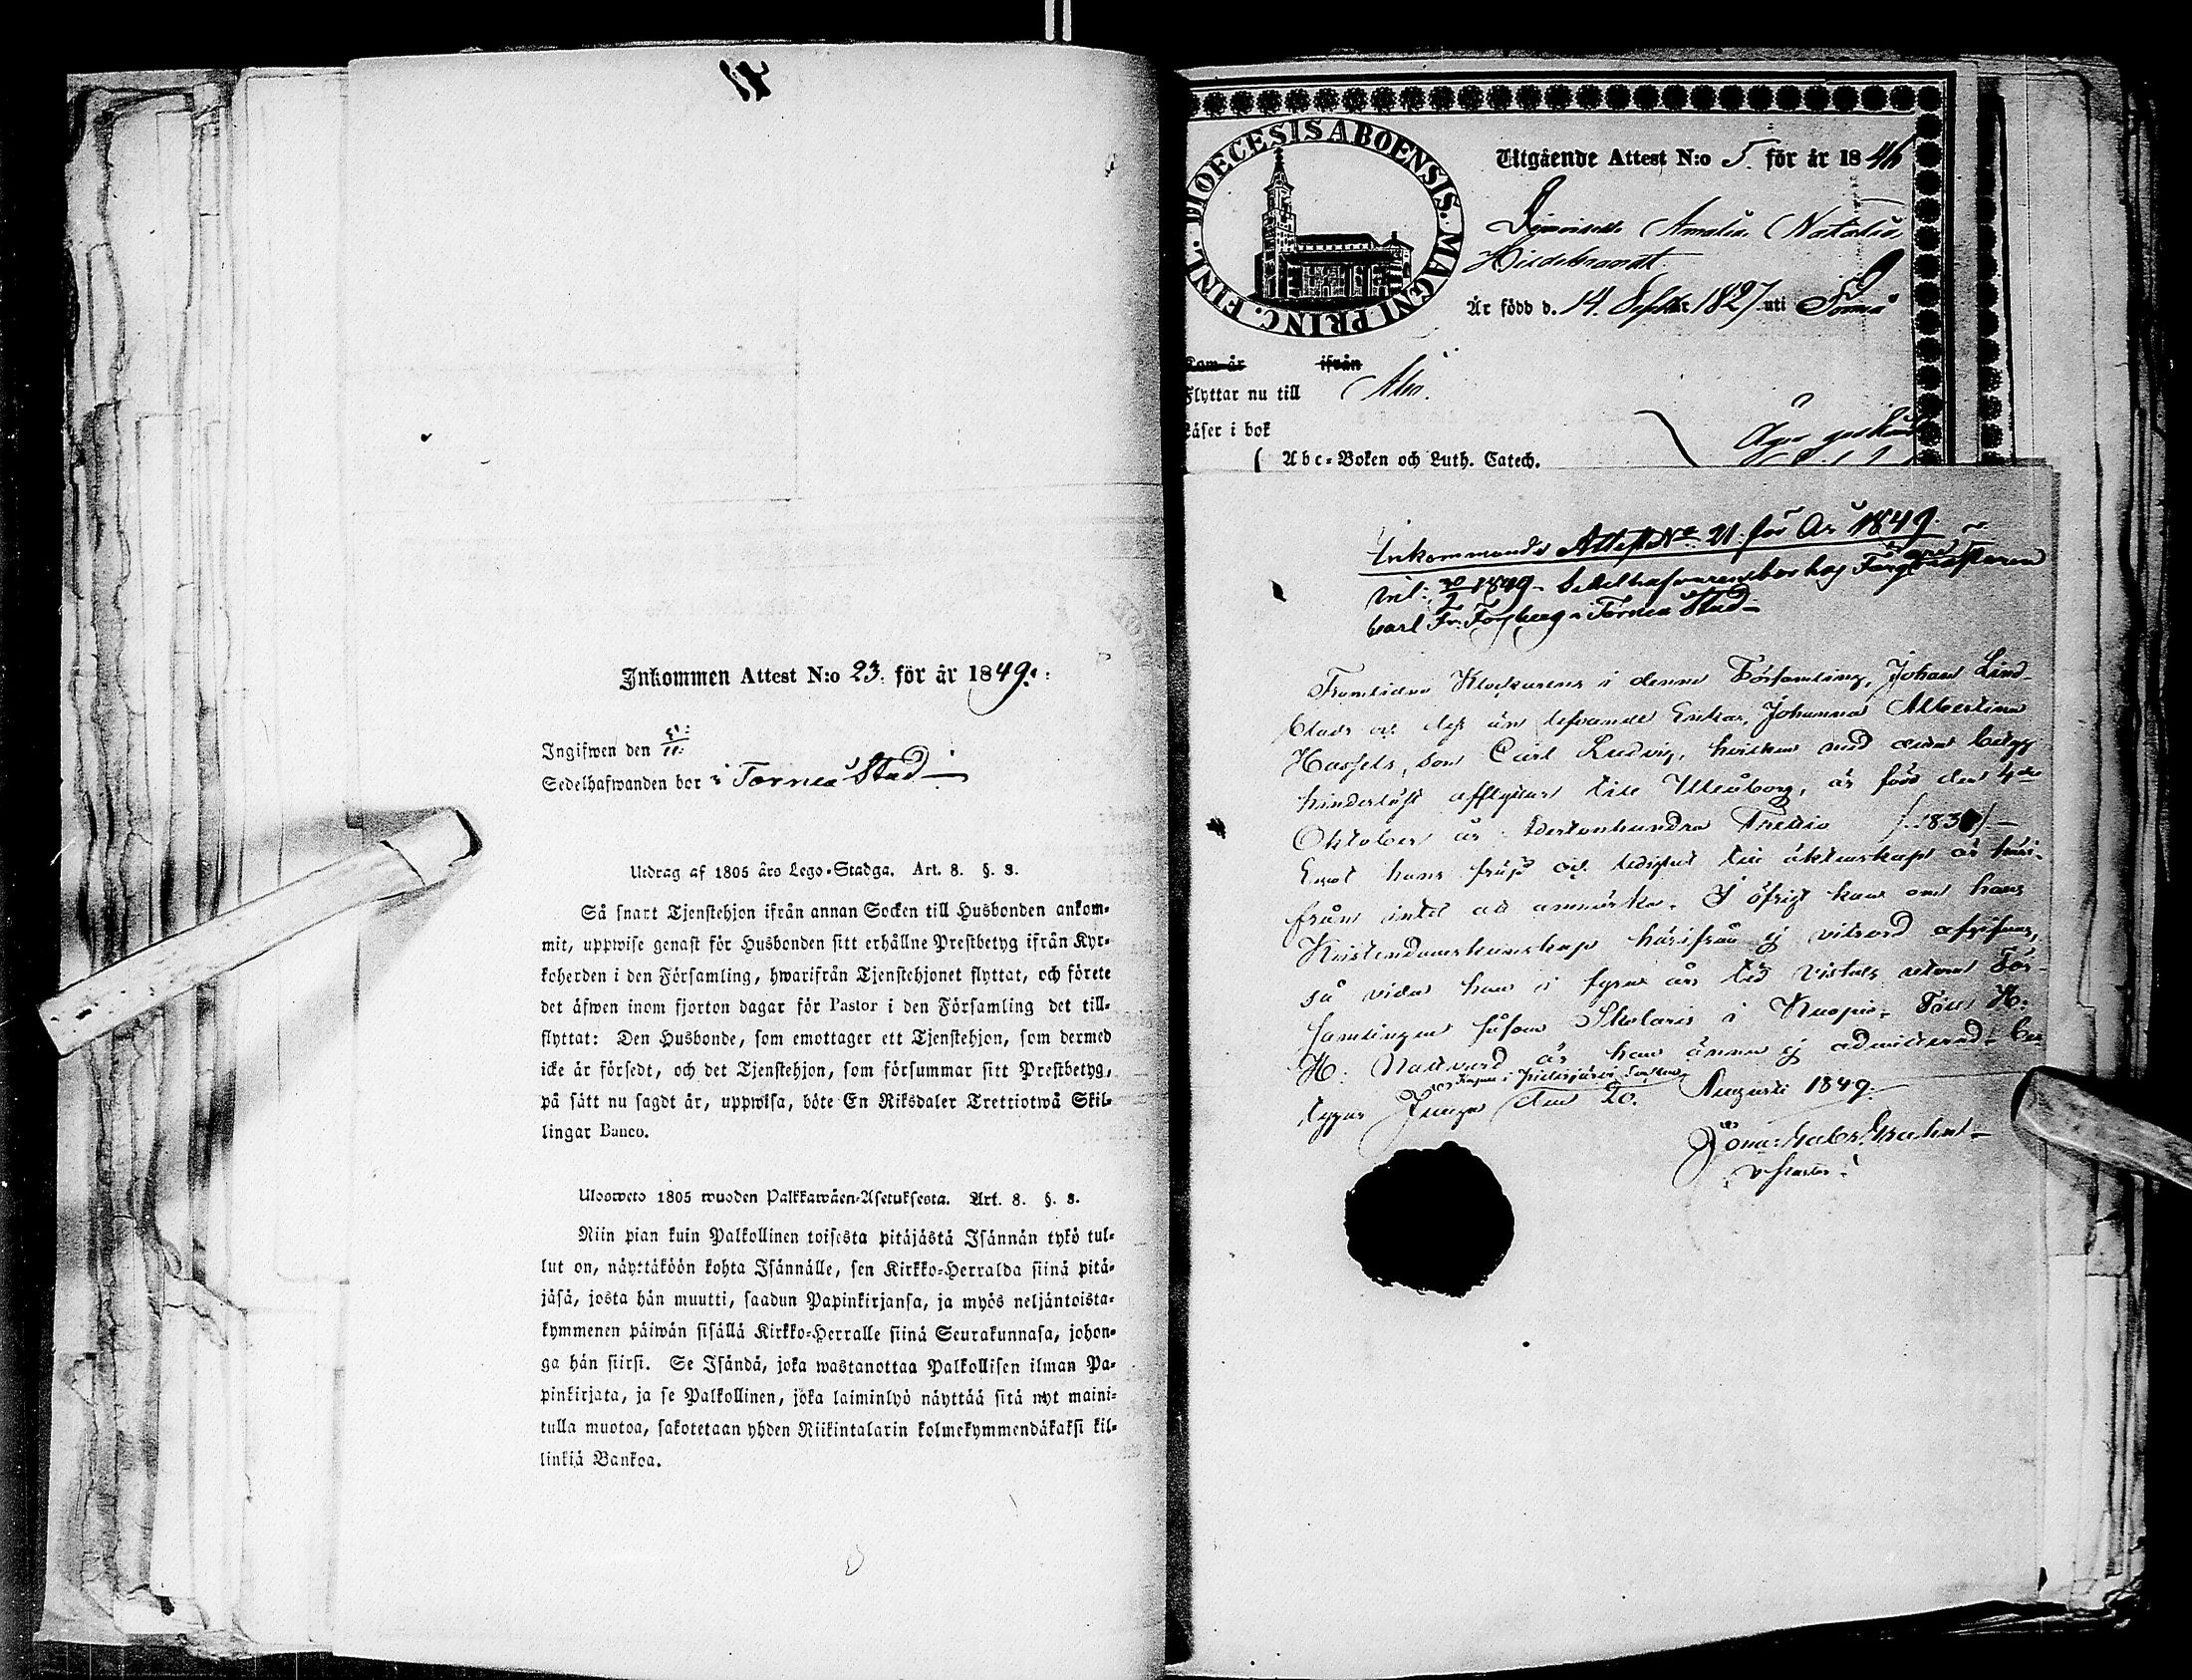 Inkommen Attest N:o 23. för år 1849.
Ingifwen den 5/11.
Sedelhafwanden bor i Torneå Stad
Utdrag af 1805 års Lego-Stadga. Art. 8. §. 3.
Så snart Tjenstehjon ifrån annan Socken till Husbonden ankom-
mit, uppwise genast för Husbonden sitt erhållne Prestbetyg ifrån Kyr-
koherden i den Församling, hwarifrån Tjenstehjonet flyttat, och förete
det äfwen inom fjorton dagar för Pastor i den Församling det till-
flyttat: Den Husbonde, som emottager ett Tjenstehjon, som dermed
icke är försedt, och det Tjenstehjon, som försummar sitt Prestbetyg,
på sätt nu sagdt är, uppwisa, böte En Riksdaler Trettiotwå Skil-
lingar Banco.
Ulosweto 1805 wuoden Palkkawäen-Asetuksesta. Art. 8. §. 3.
Niin pian kuin Palkollinen toisesta pitäjästä Isännän tykö tul-
lut on, näyttäköön kohta Isännälle, sen Kirkko-Herralda siinä pitä-
jäsä, josta hän muutti, saadun Papinkirjansa, ja myös neljäntoista-
kymmenen päiwän sisällä Kirkko-Herralle siinä Seurakunnasa, johon-
ga hän siirsi. Se Isändä, joka wastanottaa Palkollisen ilman Pa-
pinkirjata, ja se Palkollinen, joka laiminlyö näyttää sitä nyt maini-
tulla muotoa, sakotetaan yhden Riikintalarin kolmekymmendäkaksi kil-
linkiä Bankoa.
DIOECESIS ABOENSIS. MAGNI PRINC. FINL.
Utgående Attest N:o 5 för år 1846
Amalia Natalia
Hildebrandt
Är född d. 14. Septbr 1827 uti
Kom år ifrån
Flyttar nu till Åbo.
Läser i bok
Abc-Boken och Luth. Catech.
Äger
Inkommande Attest No 21. för År 1849.
1849. Sedelhafvaren bor hos
Carl Fr. Forsberg i Torneå Stad
Framlidne Klockarens i denne Församling, Johan Lind-
och dess än lefvande Enkas, Johanna Albertina
Hassels, Son Carl Ludvig, hvilken med detta betyg
hinderlöst afflyttar till Uleåborg, är född den 4de
Oktober år Adertonhundra Trettio
Emot hans frejd och ledighet till äktenskap är häri-
från intet att anmärka. I öfrigt kan om hans
Kristendomskunskap härifrån ej vitsord afgifvas,
så vida han i fyra års tid vistats utom För-
samlingen såsom Skolaris i Kuopio. Till H.
H. Nattvard är han ännu ej admitterad. Be-
tygar den 20. Augusti 1849.